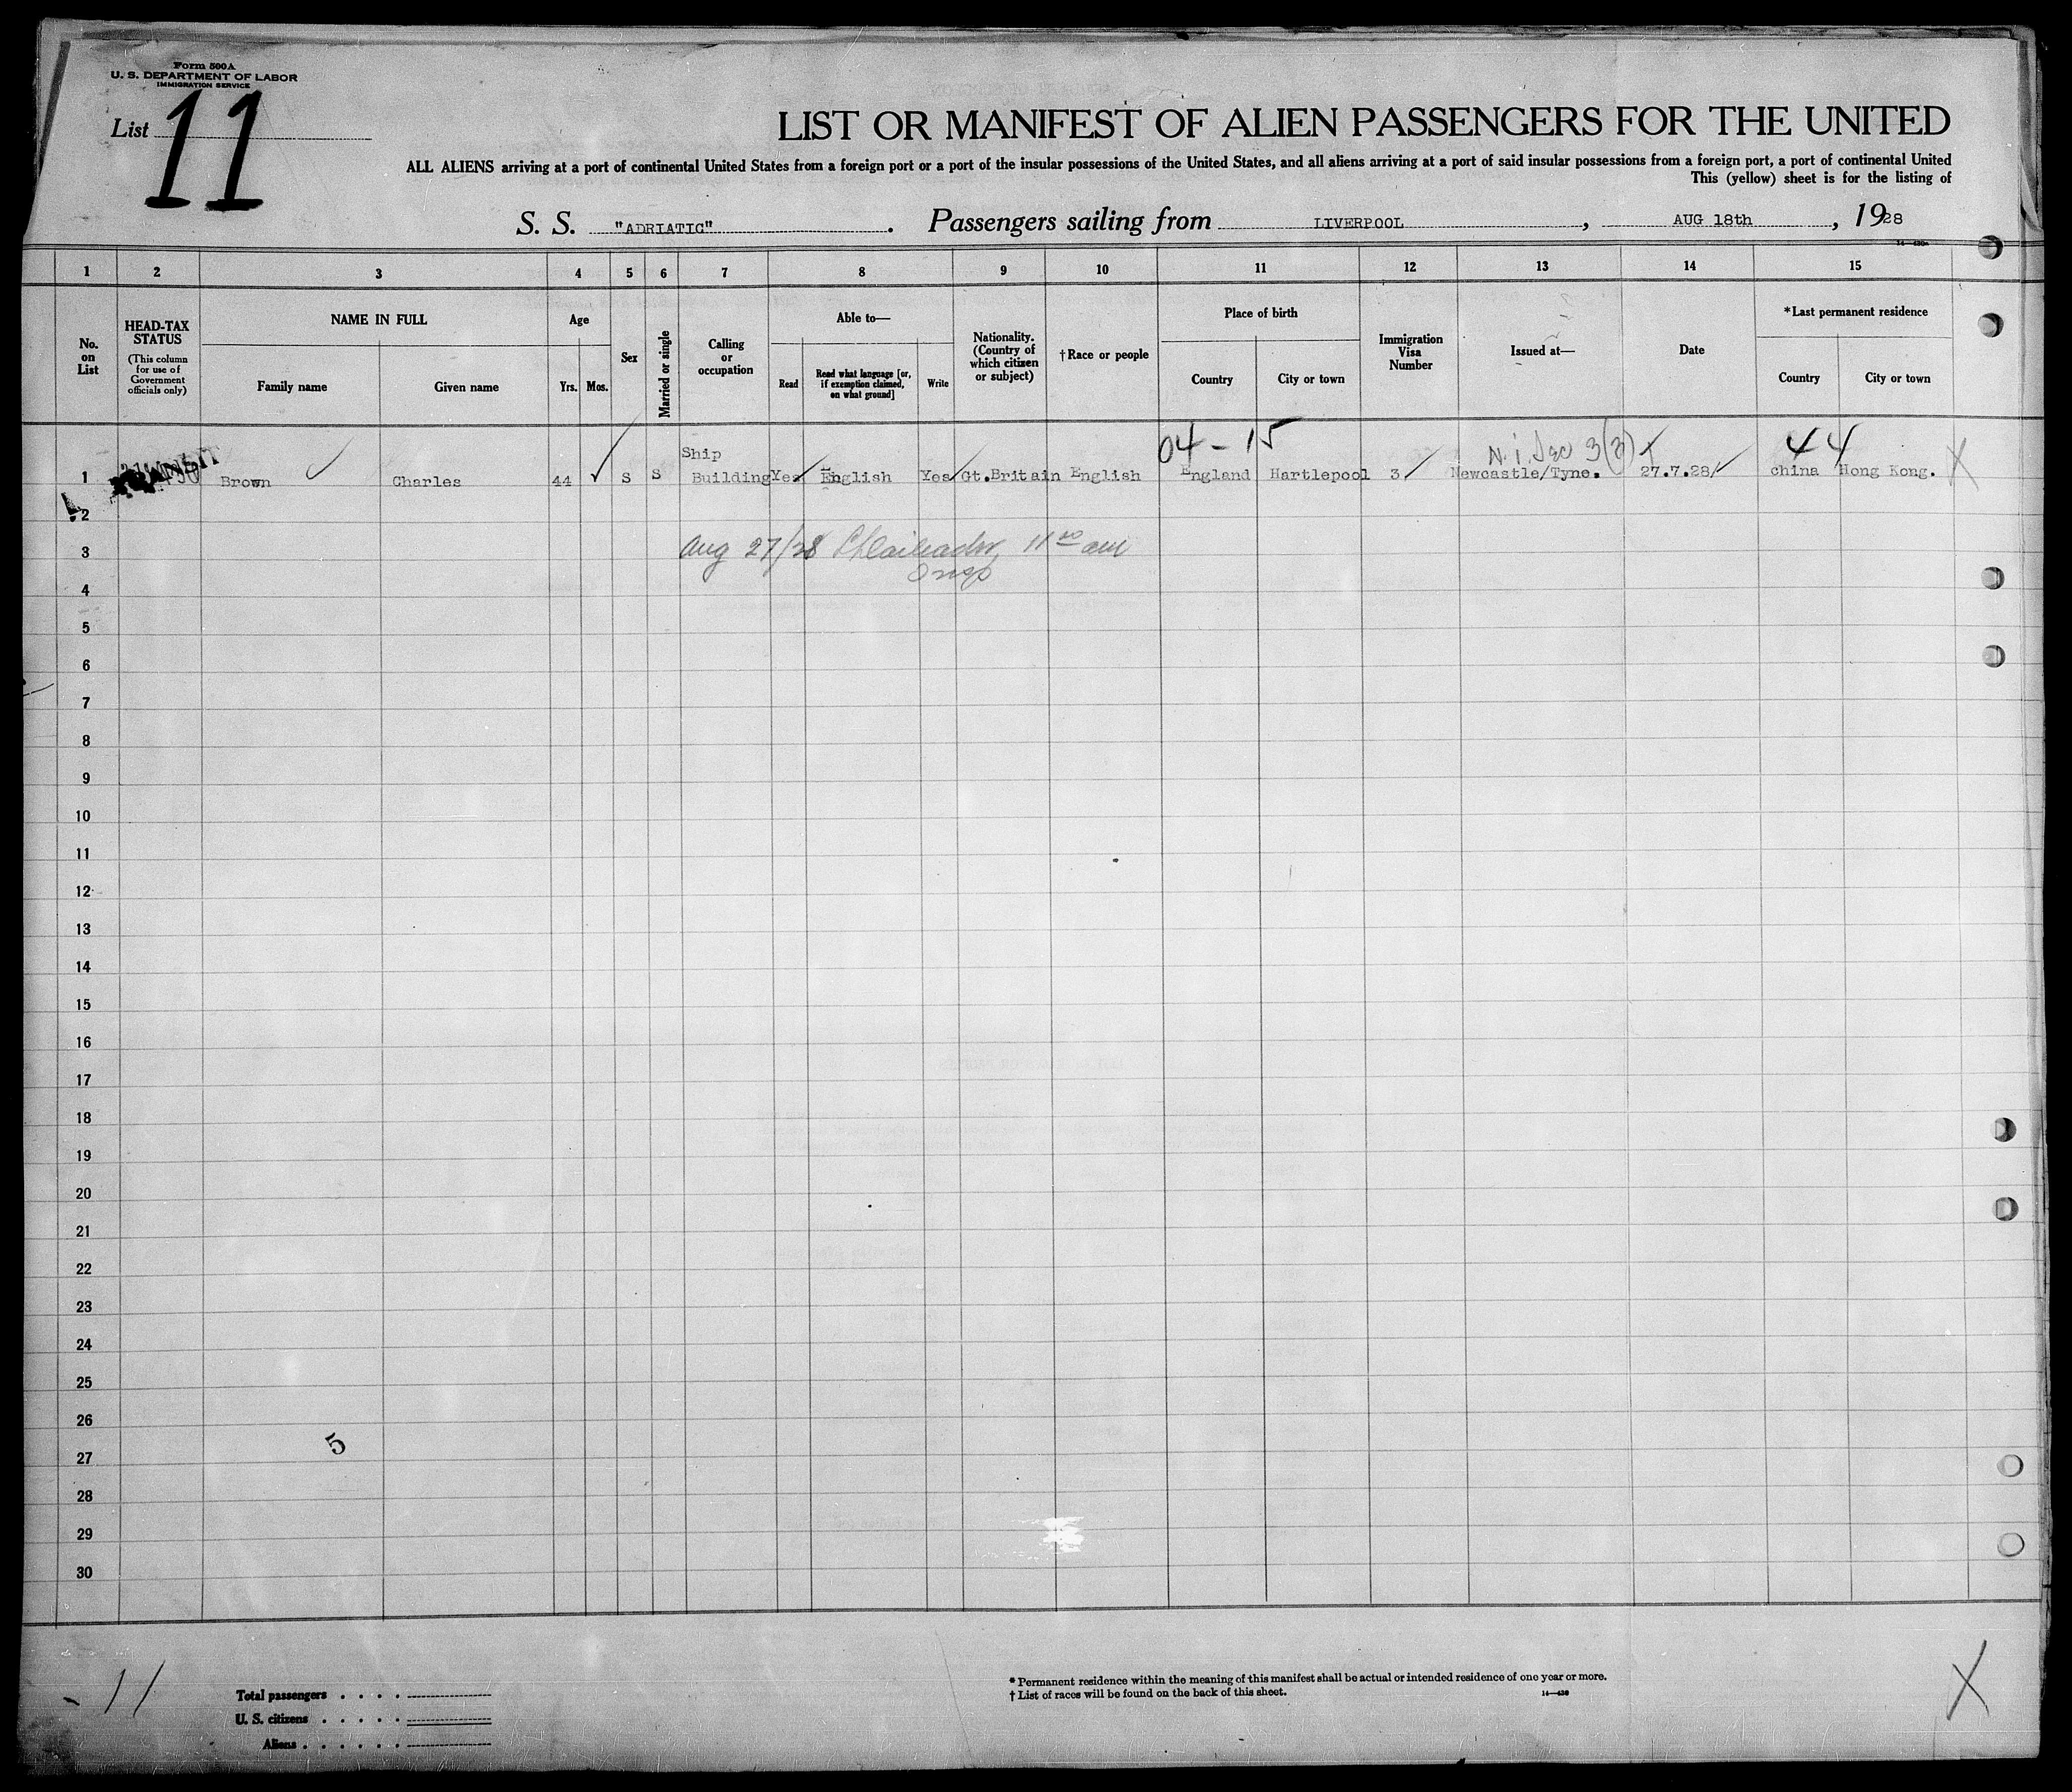 Form 500A
U. S. DEPARTMENT OF LABOR
IMMIGRATION SERVICE
List 11
LIST OR MANIFEST OF ALIEN PASSENGERS FOR THE UNITED
ALL ALIENS arriving at a port of continental United States from a foreign port or a port of the insular possessions of the United States, and all aliens arriving at a port of said insular possessions from a foreign port, a port of continental United
This (yellow) sheet is for the listing of
S. S. "ADRIATIC". Passengers sailing from LIVERPOOL, AUG 18th, 1928
1 2 3 4 5 6 7 8 9 10 11 12 13 14 15
No. on List
HEAD-TAX STATUS
(This column for use of Government officials only)
NAME IN FULL
Family name
Given name
Age
Yrs. Mos.
Sex
Married or single
Calling or occupation
Able to—
Read
Read what language [or, if exemption claimed, on what ground]
Write
Nationality. (Country of which citizen or subject)
†Race or people
Place of birth
Country
City or town
Immigration Visa Number
Issued at—
Date
*Last permanent residence
Country
City or town
04 - 15
3(3)
44
1 Brown Charles 44 S S Ship Building Yes English Yes Gt.Britain English England Hartlepool 3 Newcastle/Tyne. 27.7.28 china Hong Kong.
2
3 Aug 27/28 11 00 am
Insp
4
5
6
7
8
9
10
11
12
13
14
15
16
17
18
19
20
21
22
23
24
25
26
5
27
28
29
30
11
Total passengers
U. S. citizens
Aliens
* Permanent residence within the meaning of this manifest shall be actual or intended residence of one year or more.
† List of races will be found on the back of this sheet.
14—430
X